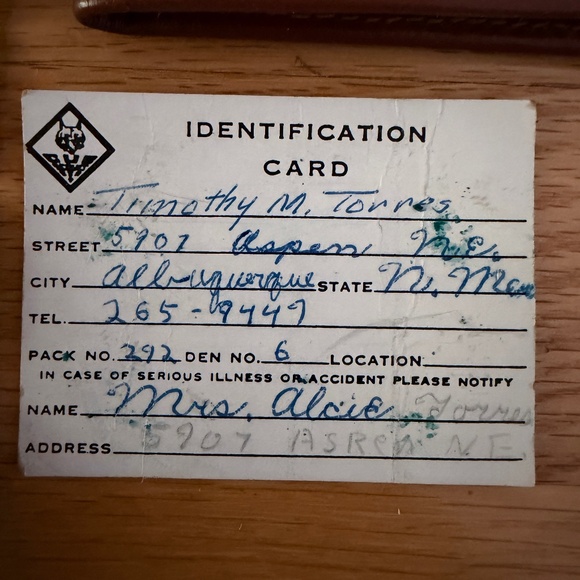 IDENTIFICATION
CARD
NAME Timothy M. Torres
STREET 5907 Aspen N.E.
CITY Albuquerque STATE N. Mex
TEL. 265-9447
PACK NO. 292 DEN NO. 6 LOCATION
IN CASE OF SERIOUS ILLNESS OR ACCIDENT PLEASE NOTIFY
NAME Mrs. Alcie Torres
ADDRESS 5907 ASPEN NE.